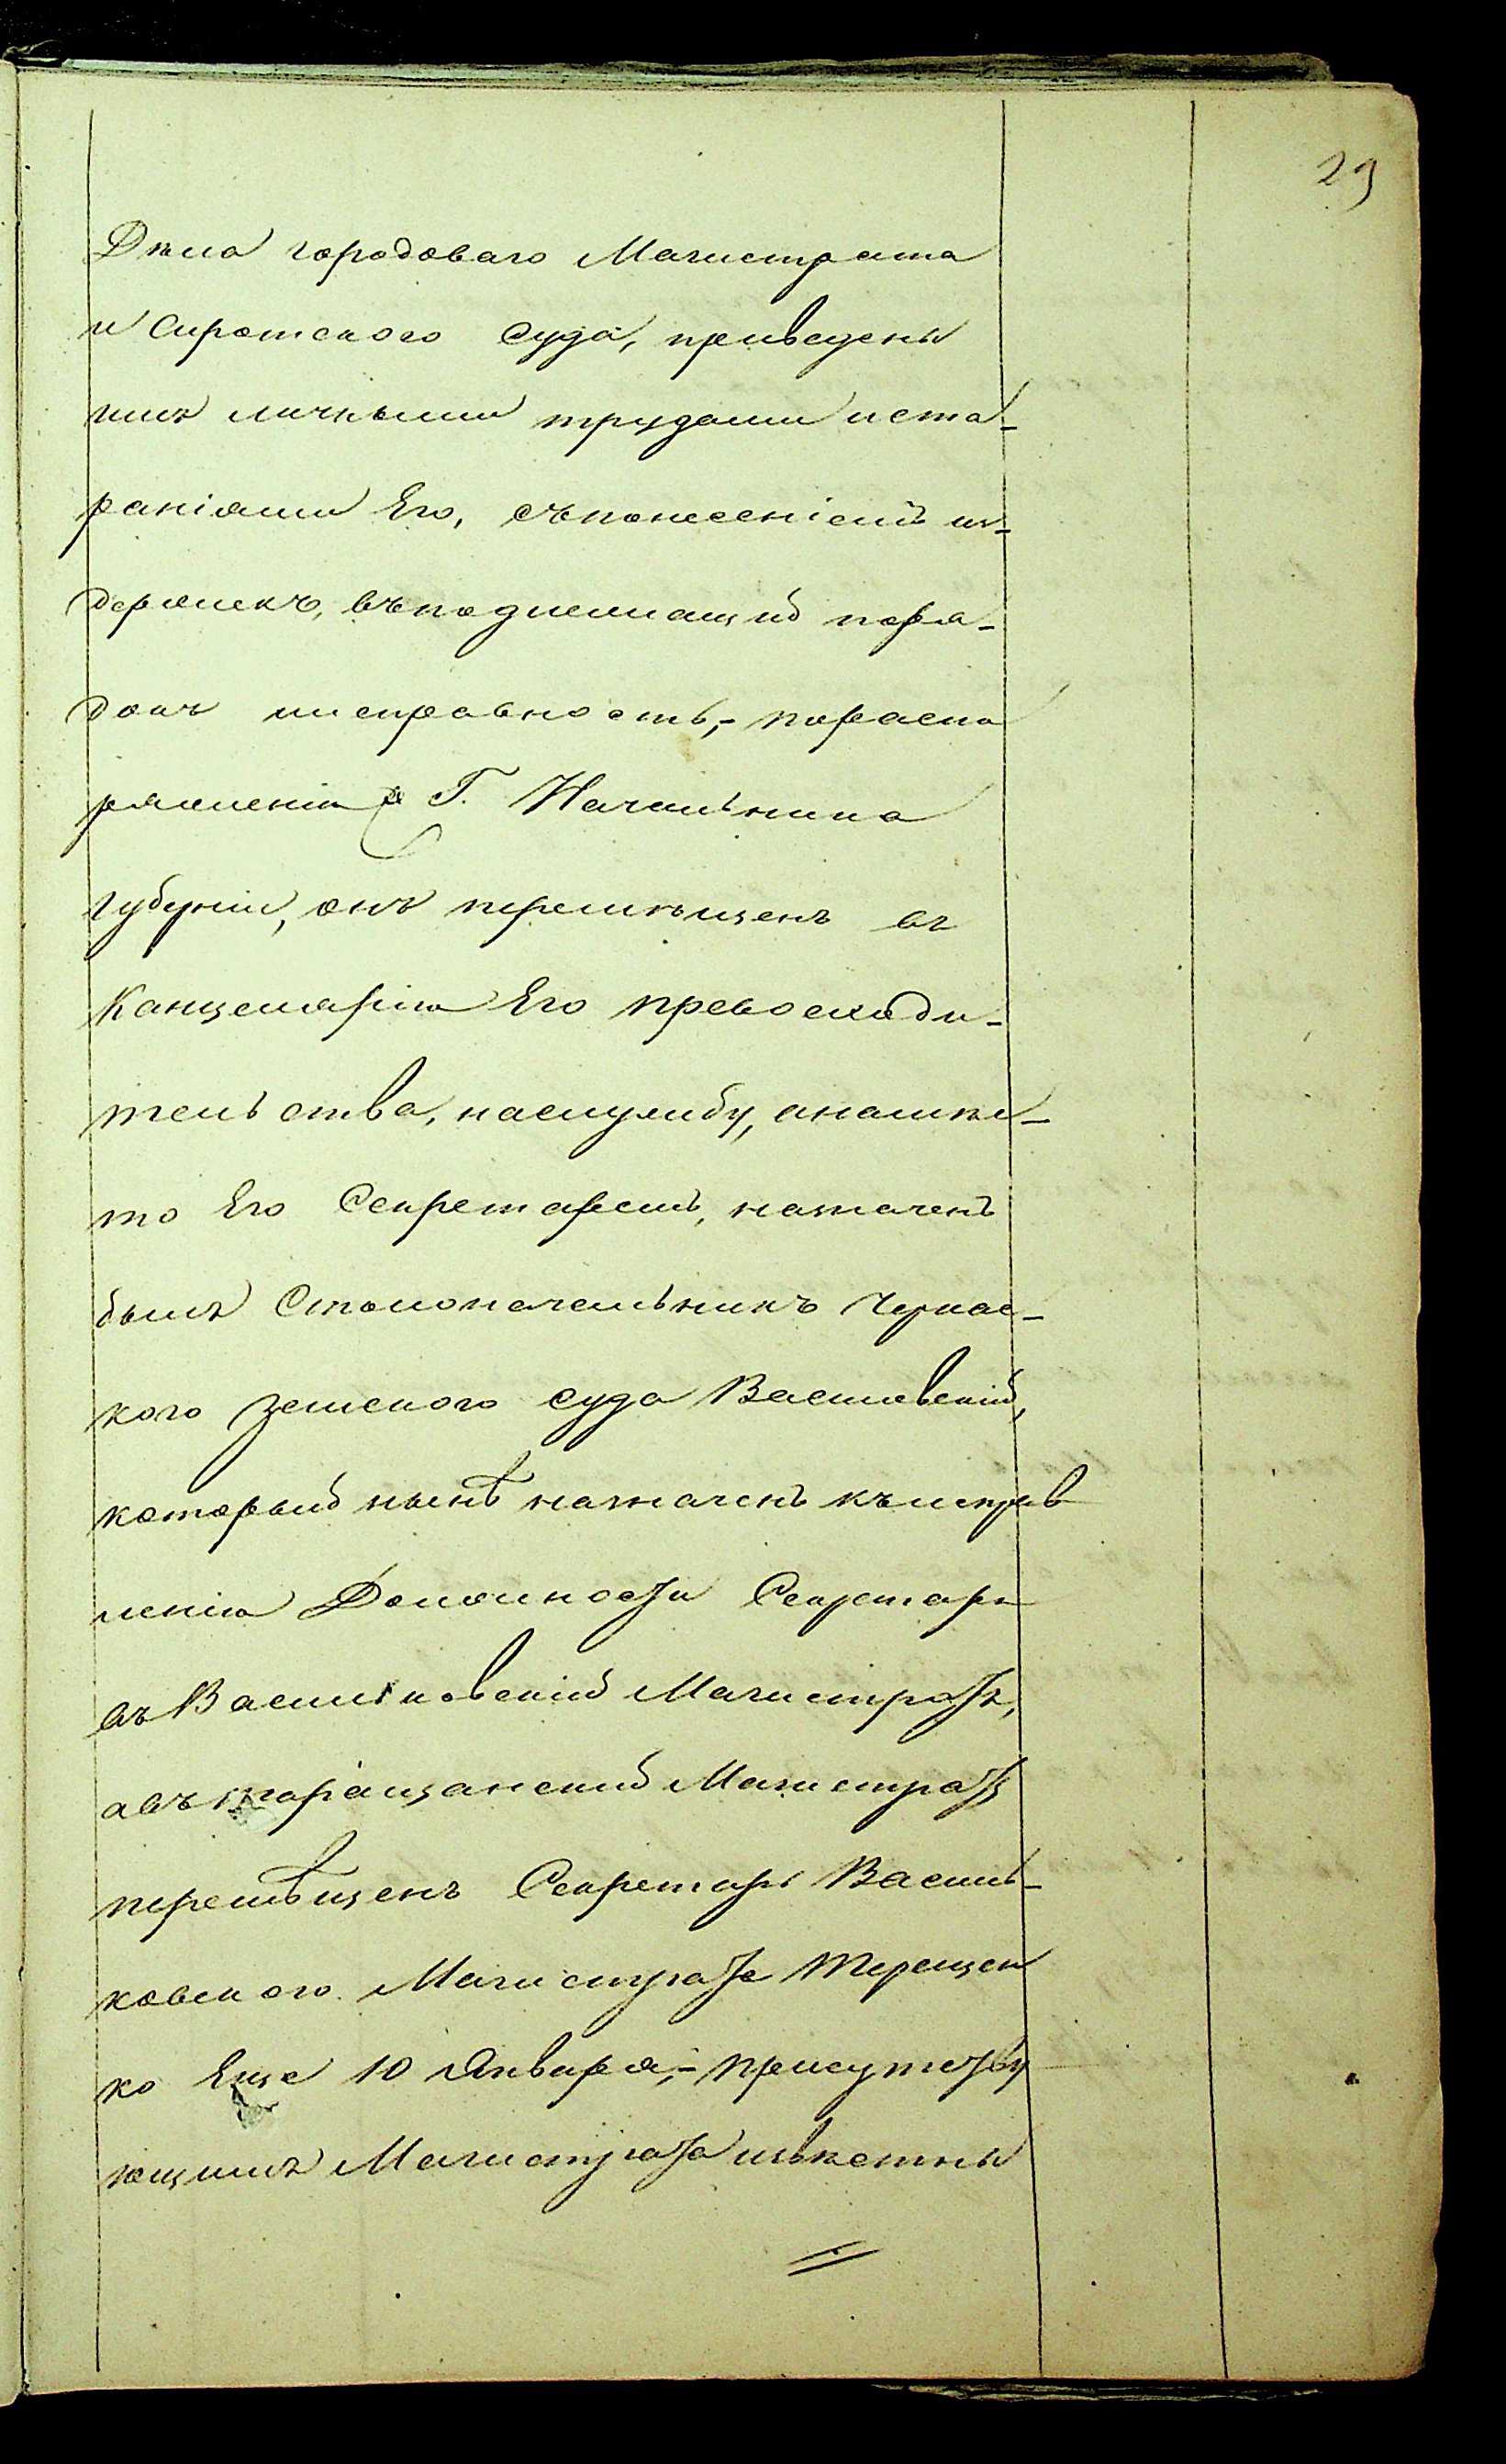 29
Дѣла городоваго Магистрата
и Сиротского Суда, приведены
имъ личными трудами иста-
раніями Его, съпонесеніемъ из-
держекъ, въподлежащій поря-
докъ иисправность,- пораспо
ряженію Г. Начальника
губерніи, онъ перемѣщенъ въ
Канцелярію Его превосходи-
тельства, наслужбу, анамѣс-
то Его Секретаремъ, назначенъ
былъ Столоначальникъ Черкас-
кого земского суда Василевскій,
который нынѣ назначенъ къисправ
ленію Должности Секретаря
въ Васильковскій Магистратъ,
авъ таращанский Магистратъ
перемѣщенъ Секретарь Василь-
ковского Магистрата Терещен
ко Еще 10 Января,- присутству
ющимъ Магистрата извѣстны